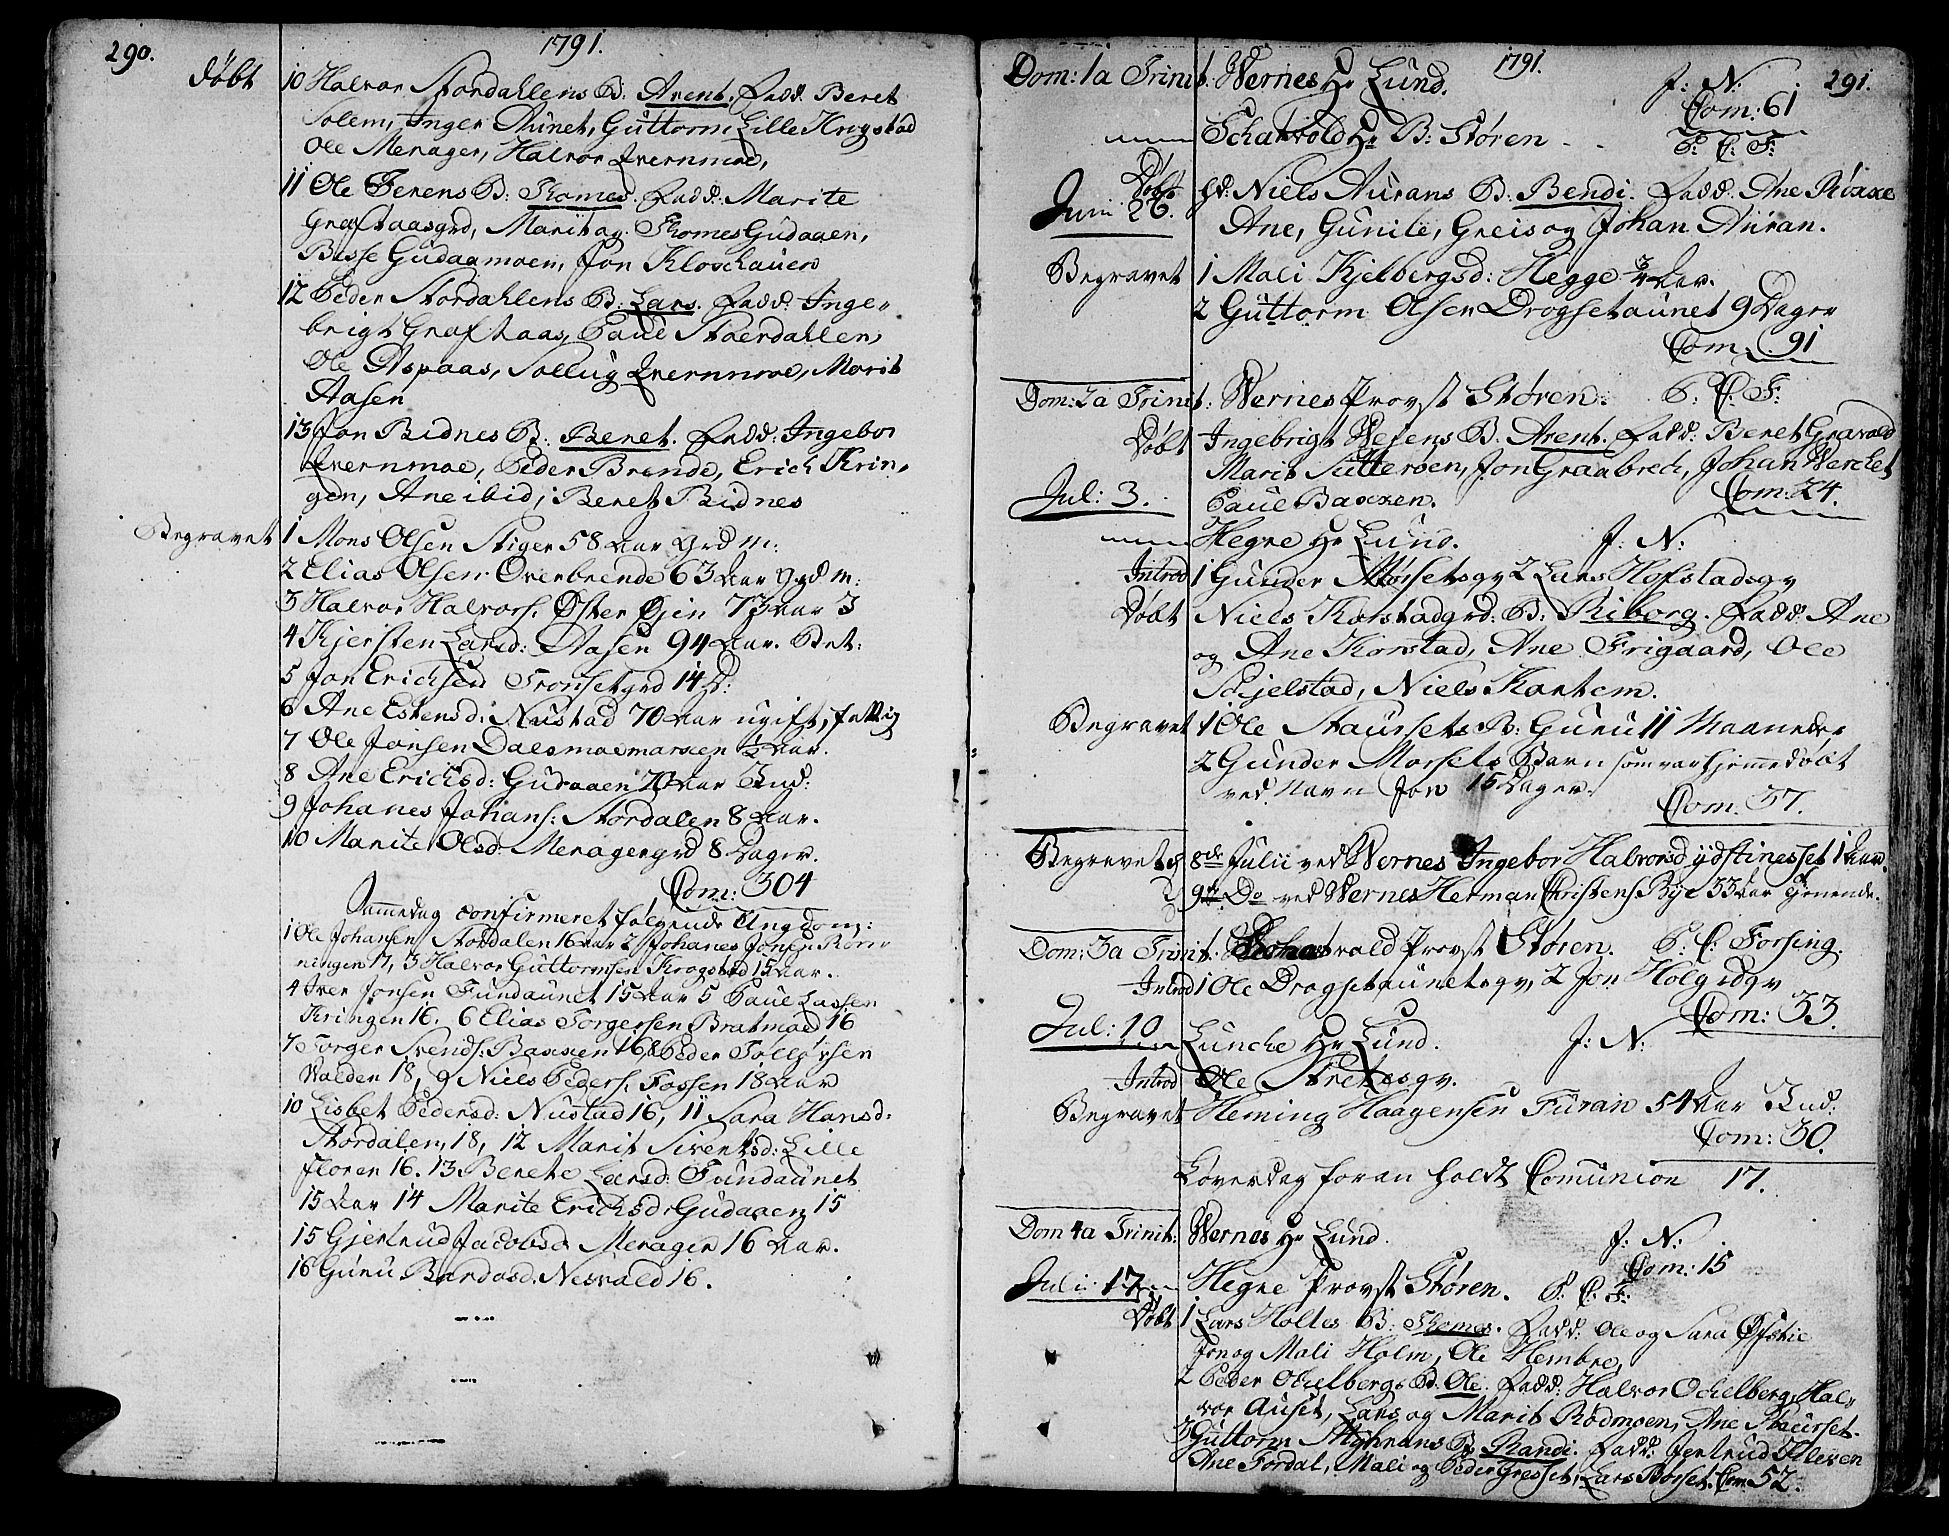 290.
1791.
Døbt
10 Halvor Stordahlens B: Arent. Fadd: Beret
Solem, Inger Aunet, Guttorm Lille Krogstad
Ole Merager, Halvor Qvernmoe,
11 Ole Ferens B: Thomes. Fadd: Marite
Grafstaasgrd, Marit og Thomes Gudaaen,
Besse Gudaamoen, Jon Kloschauen
12 Peder Stordahlens B: Lars. Fadd: Inge-
brigt Grafstaas, Paul Stordahlen,
Ole Aspaas, Sollug Qvernmoe, Marit
Aasen
13 Jon Bidnes B: Beret. Fadd: Ingebor
Qvernmoe, Peder Brende, Erich Krin-
gen, Ane ibid, Beret Bidnes
Begravet
1 Mons Olsen Stiger 58 Aar Grd m:
2 Elias Olsen Overbrende 63 Aar Ggd m:
3 Halvor Halvors. Øster Øjen 73 Aar 3
4 Kjersten Larsd: Aasen 94 Aar. Bet:
5 Jon Erichsen Tronsetgrd 14 D:
6 Ane Estensd: Nustad 70 Aar ugift, fattig
7 Ole Jonsen Dalsmoemarken ½ Aar.
8 Ane Erichsd: Gudaaen 70 Aar Ind:
9 Johanes Johans: Stordalen 8 Aar.
10 Marite Olsd: Meragergrd 8 Dager.
Com: 304
Sammedag confirmeret følgende Ungdom:
1 Ole Johansen Stordalen 16 Aar 2 Johanes Jonsen Røn-
ningen 17, 3 Halvor Guttormsen Krogstad 15 Aar.
4 Iver Jonsen Fundaunet 15 Aar 5 Paul Larsen
Kringen 16. 6 Elias Torgersen Bratmoe 16
7 Torger Svends: Bakken 16 8 Peder Tollofsen
Valden 18, 9 Niels Peders. Fossen 18 Aar
10 Lisbet Pedersd: Nustad 16, 11 Sara Hansd:
Stordalen, 18, 12 Marit Sivertsd: Lille
Floren 16. 13 Berete Larsd: Fundaunet
15 Aar 14 Marite Erichsd: Gudaaen 15
15 Gjertrud Jacobsd: Merager 16 Aar.
16 Guru Bardosd. Nesvald 16.
1791.
291.
Dom: 1a Trinit. Wernes Hr Lund. J: N:
Com: 61
Schatvold Hr B: Støren - . P: C: F:
Døbt
Juni 26.
Niels Aurans B: Bendi. Fadd: Ane
Ane, Gunile, Greis og Johan Auran.
Begravet 1 Mali Kjelbergsd: Hegge ¾ Aar.
2 Guttorm Olsen Drogsetaunet 9 Dager
Com. 91
Dom: 2a Trinit: Wernes Provst Støren. P: C: F:
Døbt Ingebrigt Vejens B. Arent. Fadd: Beret Gravald
Marit Sutterøen, Jon Graabrech, Johan Werchet
Jul: 3. Paul Baxxen. Com: 24.
Hegre Hr Lund. J: N:
Introd 1 Gunder Morsets qv 2 Lars Hofstads qv
Døbt Niels Korstadgrd: B: Riborg. Fadd: Ane
og Ane Korstad, Ane Frigaard, Ole
Schjelstad, Niels Kartem.
Begravet 1 Ole Staursets B: Guru 11 Maaneder
2 Gunder Morsets Barn som var hjemedøbt
ved Navn Jon 15 Dager.
Com: 37.
Begravet d 8de Julii ved Wernes Ingebor Halvorsd ydstinesset 1 Aar
d 9de Do ved Wernes Herman Christens. Bye 33 Aar
Dom: 3a Trinit. Schatvald Provst Støren. P: C: Forsing.
Introd 1 Ole Drogsetaunets qv, 2 Jon Holgids qv
Com: 33.
Jul: 10 Luncke Hr Lund. J: N:
Introd Ole Strekes qv.
Begravet Heming Haagensen Furan 54 Aar Ind.
Com: 30.
Løverdag foran holdt Comunion 17.
Dom 4a Trinit: Wernes Hr Lund. J: N:
Com: 15
Juli: 17 Hegre Provst Støren. P: C: F:
Døbt 1 Lars Holtes B: Thomes. Fadd: Ole og Sara Øfstie
Jon og Mali Holm, Ole Hembre,
2 Peder Ochelbergs B. Ole. Fadd: Halvor Ochelberg, Hal-
vor Auset, Lars og Marit Rødmoen, Ane Staurset.
3 Guttorm B: Randi. Fadd: Jertrud Kleven
Ane Fordal, Mali og Peder Gresset, Lars Borset. Com 52.